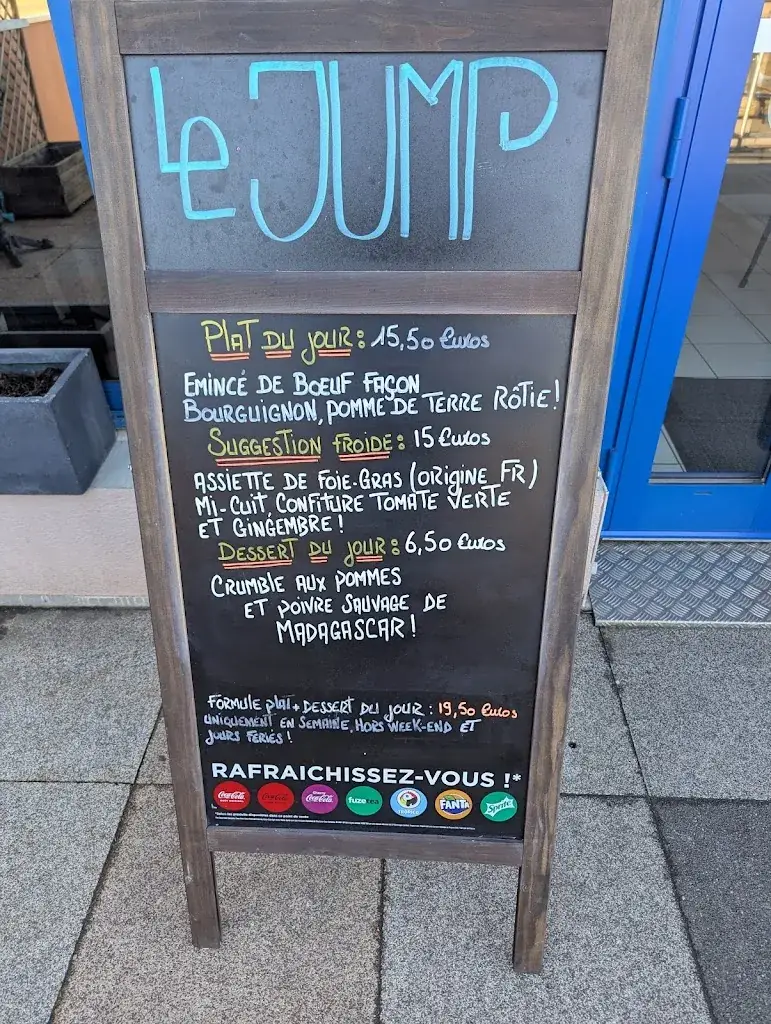 Le JUMP
PLAT DU JOUR : 15,50 Euros
EMINCÉ DE BOEUF FAÇON
BOURGUIGNON, POMME DE TERRE RÔTIE !
SUGGESTION FROIDE : 15 Euros
ASSIETTE DE FOIE-GRAS (ORIGINE FR)
MI-CUIT, CONFITURE TOMATE VERTE
ET GINGEMBRE !
DESSERT DU JOUR : 6,50 Euros
CRUMBLE AUX POMMES
ET POIVRE SAUVAGE DE
MADAGASCAR !
FORMULE PLAT + DESSERT DU JOUR : 19,50 Euros
UNIQUEMENT EN SEMAINE, HORS WEEK-END ET
JOURS FERIÉS !
RAFRAICHISSEZ-VOUS !*
Coca-Cola Coca-Cola Coca-Cola fuzetea TROPICO FANTA Sprite